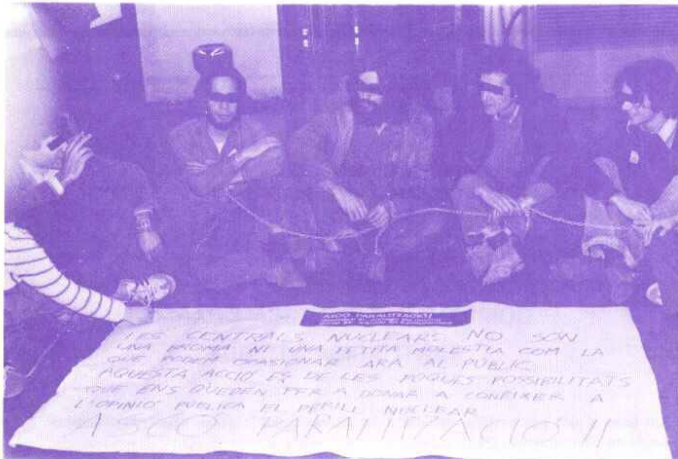 ASCO PARALITZACIO!
LES CENTRALS NUCLEARS NO SON
UNA BROMA NI UNA PETITA MOLESTIA COM LA
QUE PODEM OCASIONAR ARA AL PÚBLIC.
AQUESTA ACCIÓ ES DE LES POQUES POSSIBILITATS
QUE ENS QUEDEN PER A DONAR A CONEIXER A
L'OPINIÓ PÚBLICA EL PERILL NUCLEAR
ASCO PARALITZACIÓ!!